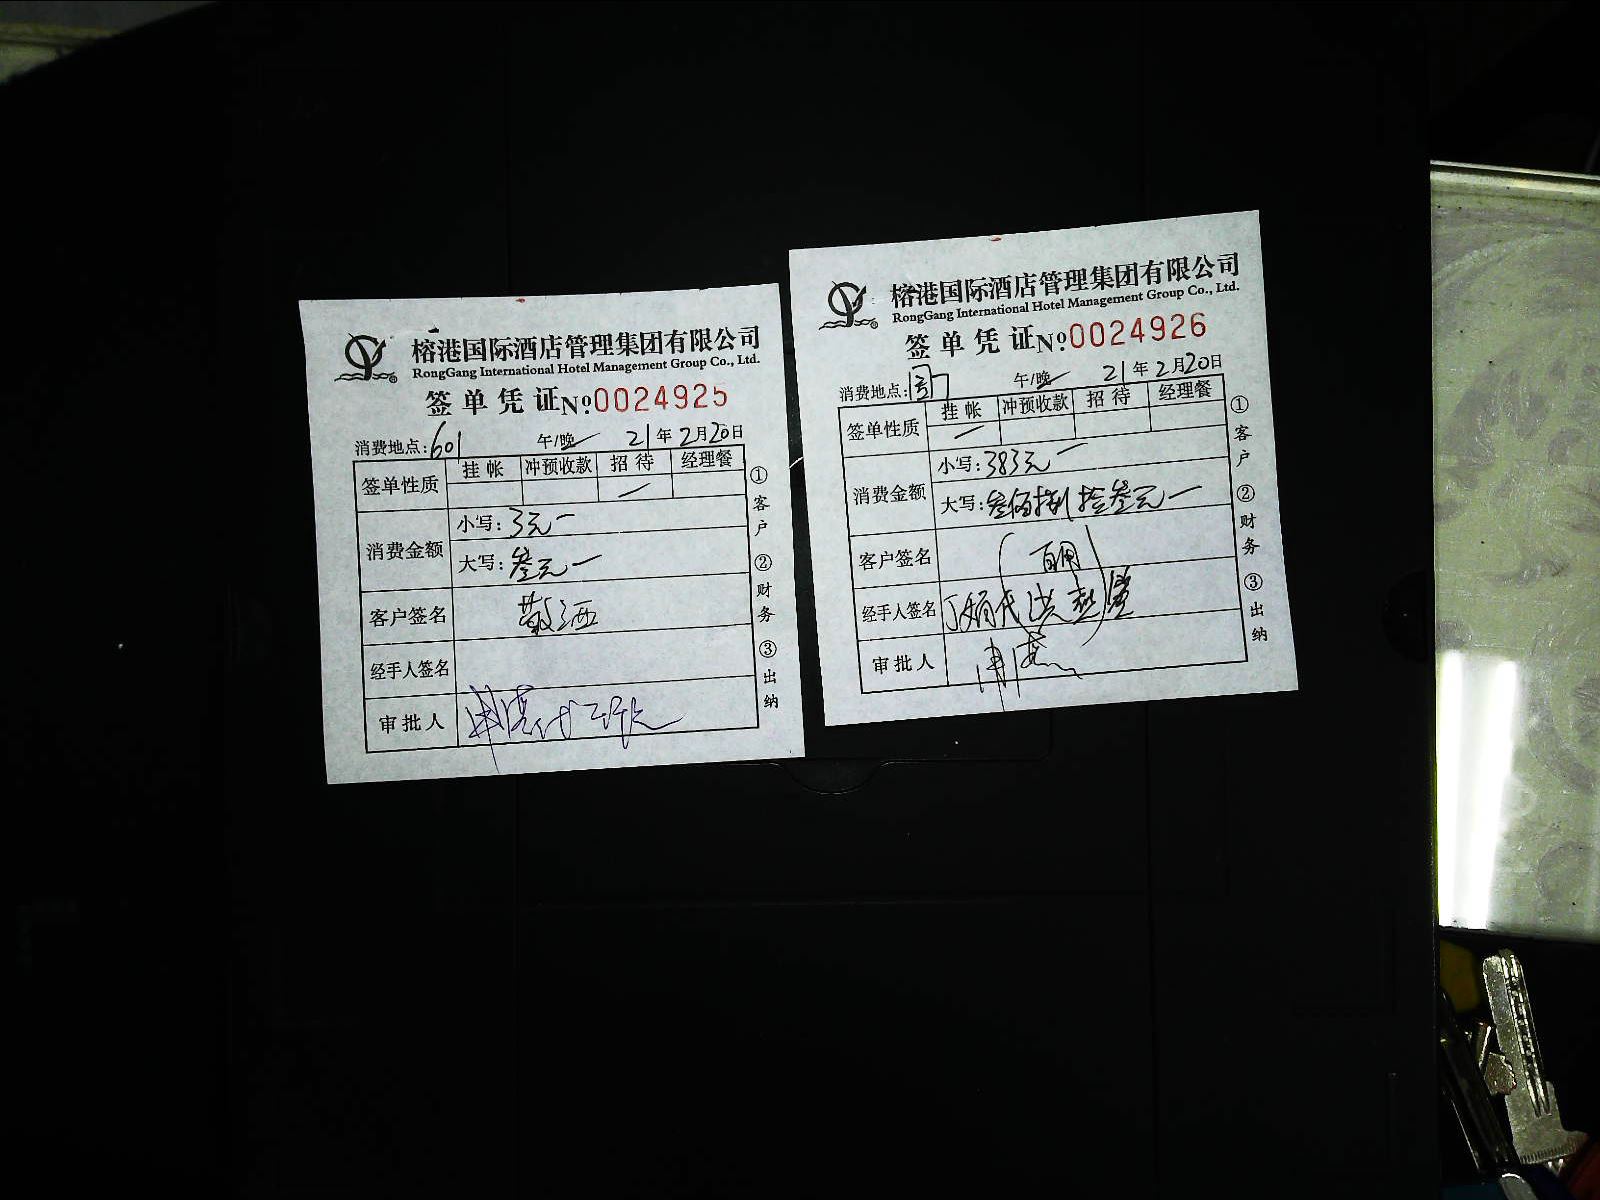 榕港国际酒店管理集团有限公司
RongGang International Hotel Management Group Co., Ltd.
签单凭证 №0024925
消费地点:601 午/晚 21年2月20日
签单性质 挂帐 冲预收款 招待 经理餐
消费金额 小写:3元
大写:叁元
客户签名 敬酒
经手人签名
审批人
①客户 ②财务 ③出纳
榕港国际酒店管理集团有限公司
RongGang International Hotel Management Group Co., Ltd.
签单凭证 №0024926
消费地点: 午/晚 21年2月20日
签单性质 挂帐 冲预收款 招待 经理餐
消费金额 小写:383元
大写:叁佰捌拾叁元
客户签名
经手人签名
审批人
①客户 ②财务 ③出纳